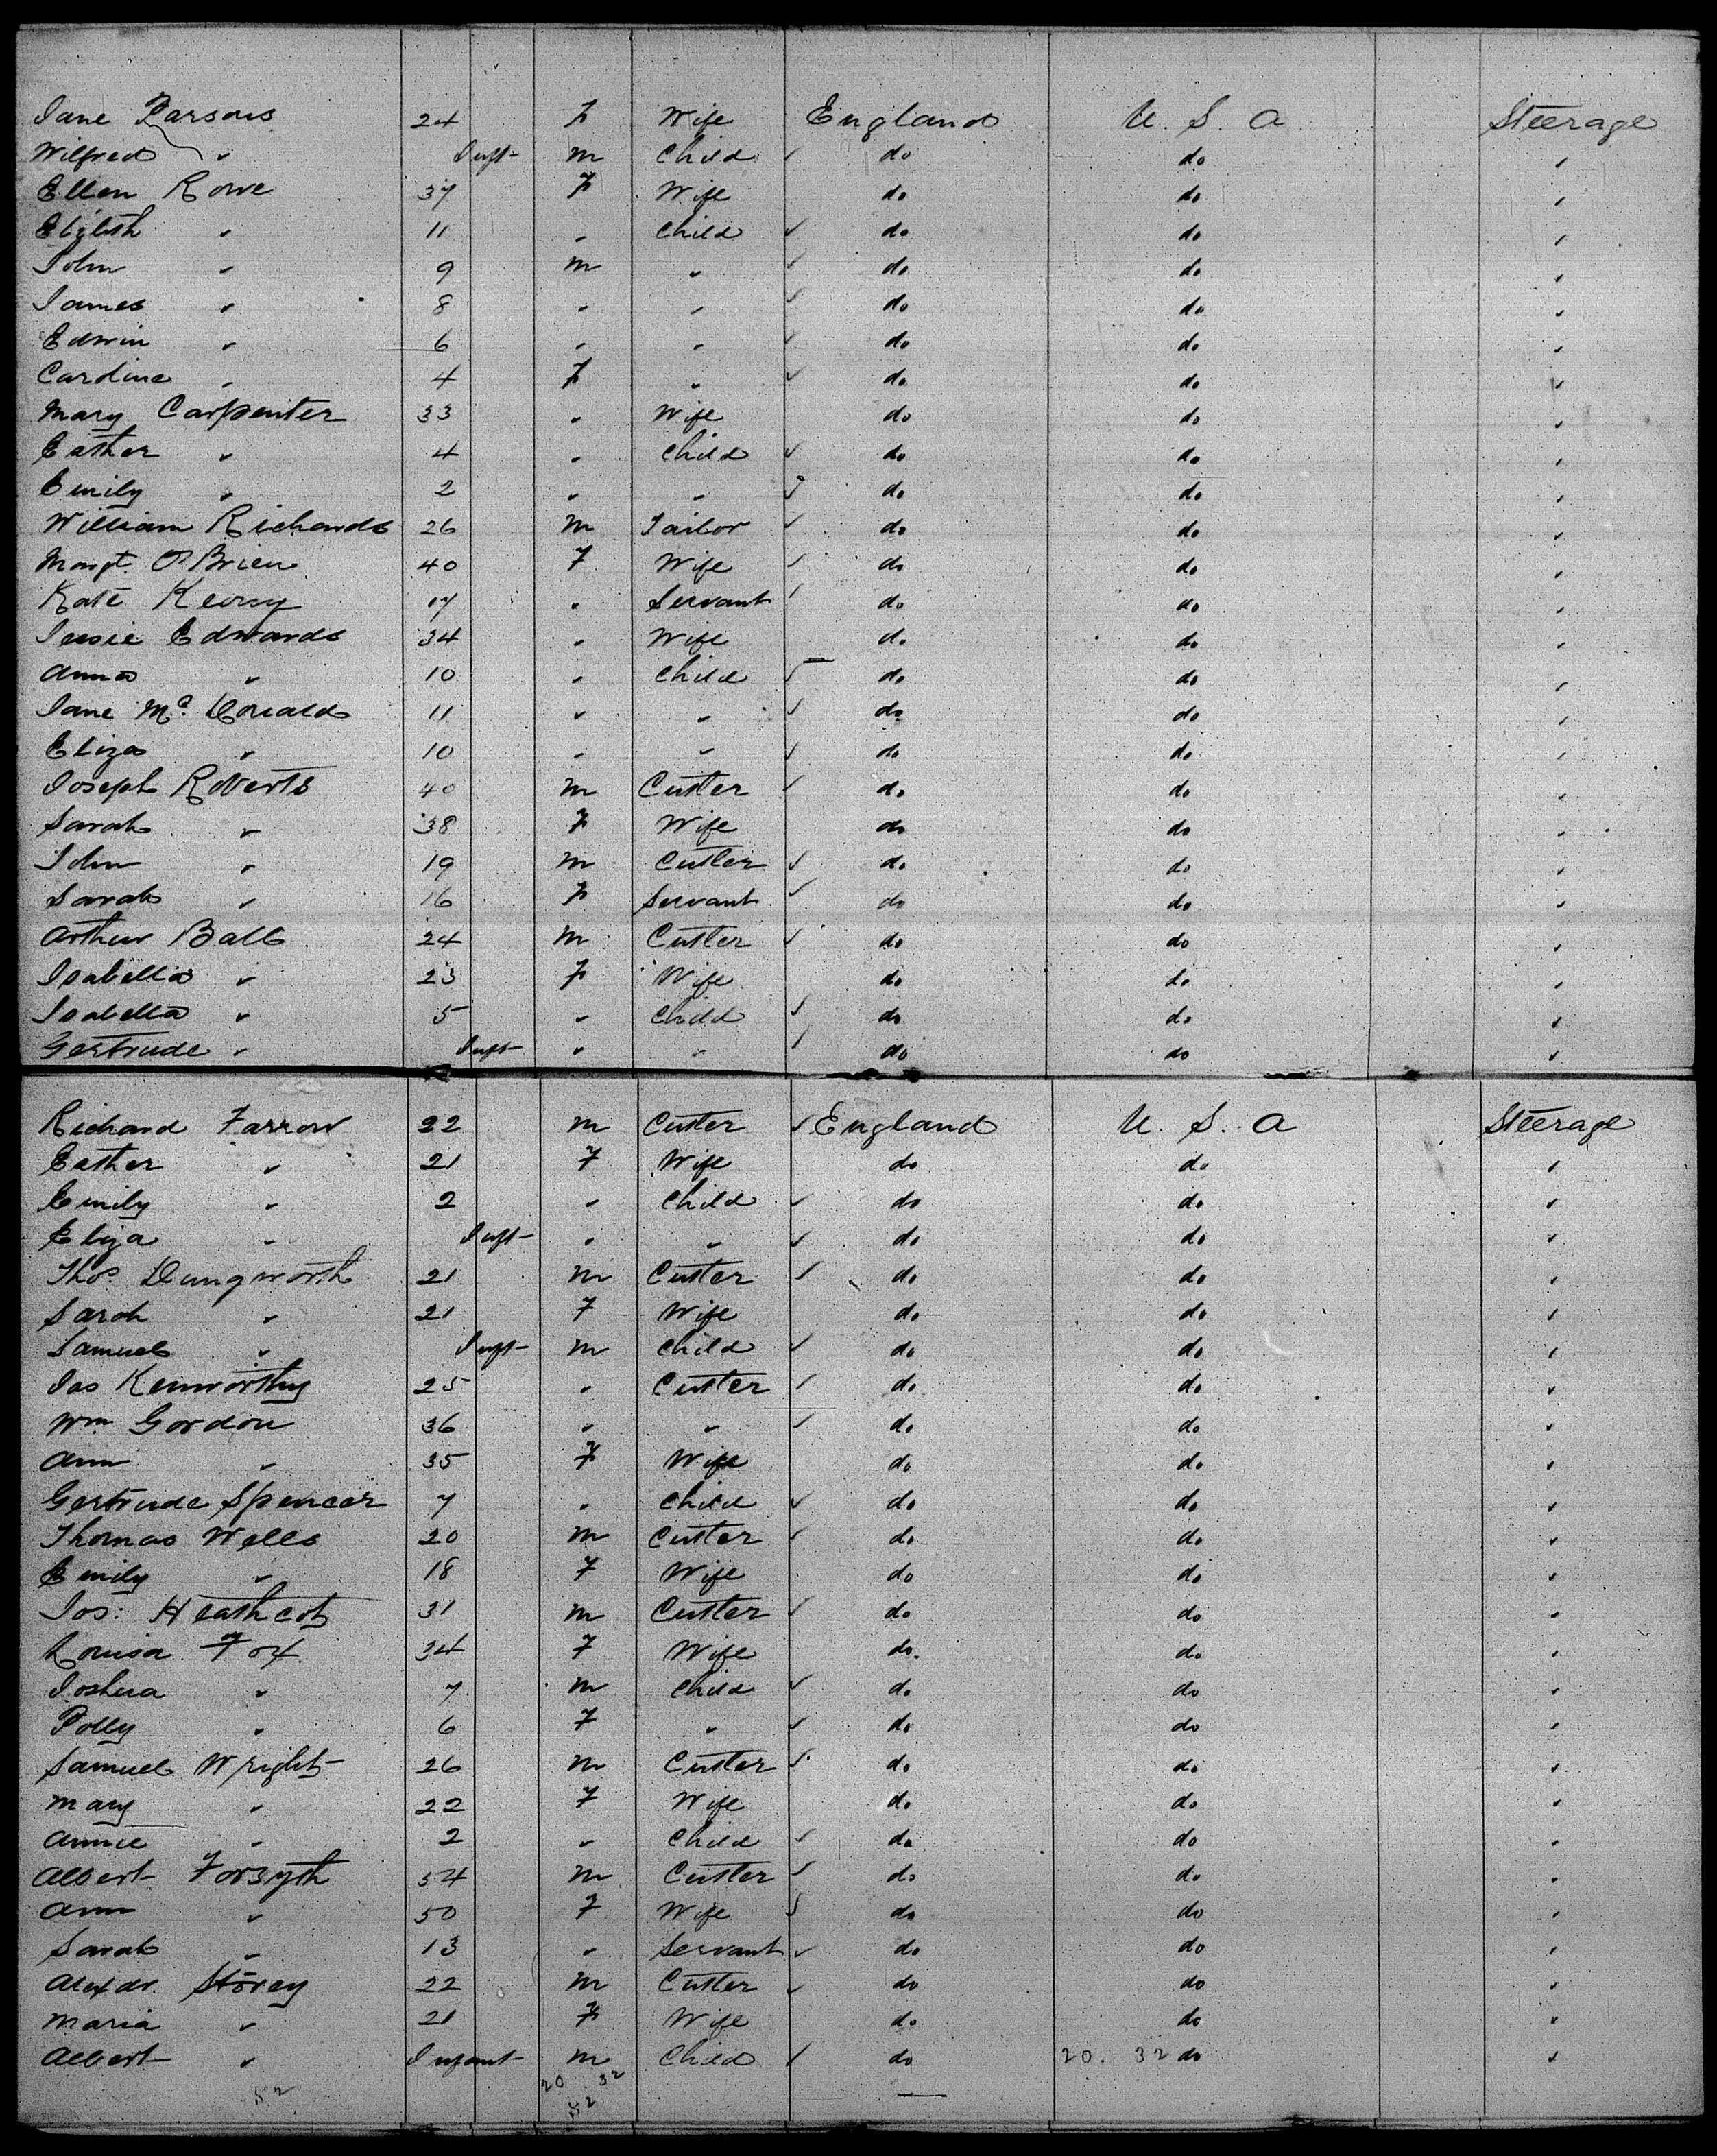 Jane Parsons 24 F Wife England U. S. A Steerage
Wilfred " Inft m Child ✓ do do "
Ellen Rowe 37 F Wife do do "
Elizbth " 11 " Child ✓ do do "
John " 9 m " ✓ do do "
James " 8 " " ✓ do do "
Edwin " 6 " " ✓ do do "
Caroline " 4 F " ✓ do do "
Mary Carpenter 33 " Wife do do "
Esther " 4 " Child ✓ do do "
Emily " 2 " " ✓ do do "
William Richards 26 m Tailor ✓ do do "
Margt. O'Brien 40 F Wife ✓ do do "
Kate 17 " Servant ✓ do do "
Jessie Edwards 34 " Wife do do "
Anna " 10 " Child ✓ do do "
Jane Mc. Donald 11 " " ✓ do do "
Eliza " 10 " " ✓ do do "
Joseph Roberts 40 m Cutler ✓ do do "
Sarah " 38 F Wife do do "
John " 19 m Cutler ✓ do do "
Sarah " 16 F Servant ✓ do do "
Arthur Ball 24 m Cutler ✓ do do "
Isabella " 23 F Wife do do "
Isabella " 5 " Child ✓ do do "
Gertrude " Inft " " ✓ do do "
Richard Farrow 22 m Cutler ✓ England U. S. A Steerage
Esther " 21 F Wife do do "
Emily " 2 " Child ✓ do do "
Eliza " Inft " " ✓ do do "
Thos. Dungworth 21 m Cutler ✓ do do "
Sarah " 21 F Wife do do "
Samuel " Inft m Child ✓ do do "
Jas Kenworthy 25 " Cutler ✓ do do "
Wm Gordon 36 " " ✓ do do "
Ann " 35 F Wife do do "
Gertrude Spencer 7 " Child ✓ do do "
Thomas Wells 20 m Cutler ✓ do do "
Emily " 18 F Wife do do "
Jos: Heathcot 31 m Cutler ✓ do do "
Louisa Fox 34 F Wife do. do "
Joshua " 7 m Child ✓ do do "
Polly " 6 F " ✓ do do "
Samuel Wright 26 m Cutler ✓ do do "
Mary " 22 F Wife do do "
Annie " 2 " Child ✓ do do "
Albert Forsyth 54 m Cutler ✓ do do "
Ann " 50 F Wife ✓ do do "
Sarah " 13 " Servant ✓ do do "
Alexdr. Storey 22 m Cutler ✓ do do "
Maria " 21 F Wife do do "
Albert " Infant m Child ✓ do 20. 32 do "
20 32
52 52